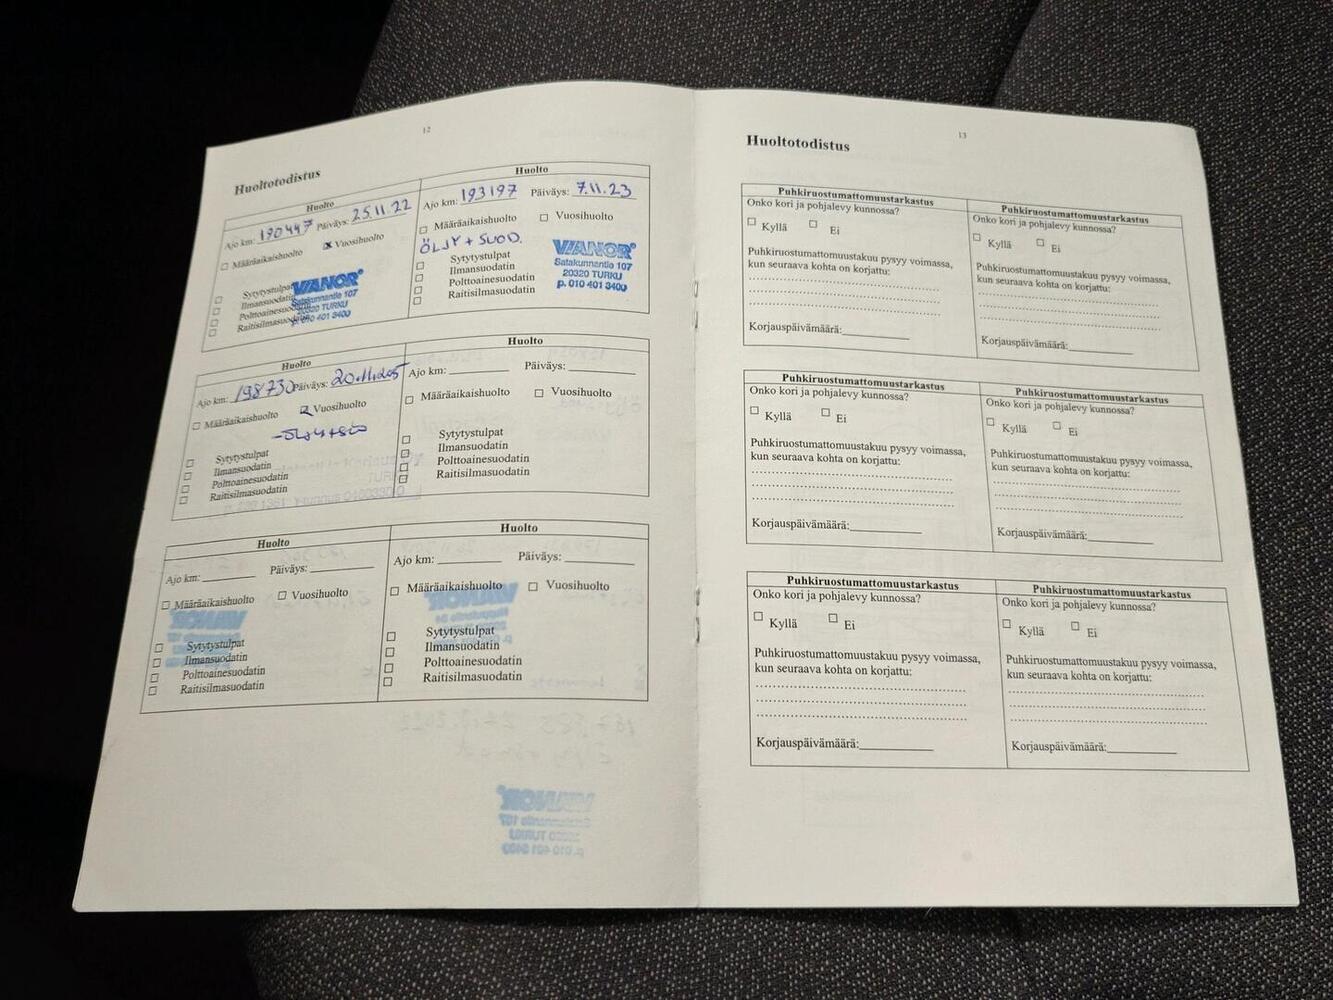 12
Huoltotodistus
Huolto
Ajo km: 190447 Päiväys: 25.11.22
☐ Määräaikaishuolto ☒ Vuosihuolto
☐ Sytytystulpat
☐ Ilmansuodatin
☐ Polttoainesuodatin
☐ Raitisilmasuodatin
VIANOR®
Satakunnantie 107
20320 TURKU
p. 010 401 3400
Huolto
Ajo km: 193197 Päiväys: 7.11.23
☐ Määräaikaishuolto ☐ Vuosihuolto
ÖLJY + SUOD.
☐ Sytytystulpat
☐ Ilmansuodatin
☐ Polttoainesuodatin
☐ Raitisilmasuodatin
VIANOR®
Satakunnantie 107
20320 TURKU
p. 010 401 3400
Huolto
Ajo km: 198730 Päiväys:
☐ Määräaikaishuolto ☒ Vuosihuolto
☐ Sytytystulpat
☐ Ilmansuodatin
☐ Polttoainesuodatin
☐ Raitisilmasuodatin
Huolto
Ajo km: Päiväys:
☐ Määräaikaishuolto ☐ Vuosihuolto
☐ Sytytystulpat
☐ Ilmansuodatin
☐ Polttoainesuodatin
☐ Raitisilmasuodatin
Huolto
Ajo km: Päiväys:
☐ Määräaikaishuolto ☐ Vuosihuolto
☐ Sytytystulpat
☐ Ilmansuodatin
☐ Polttoainesuodatin
☐ Raitisilmasuodatin
Huolto
Ajo km: Päiväys:
☐ Määräaikaishuolto ☐ Vuosihuolto
☐ Sytytystulpat
☐ Ilmansuodatin
☐ Polttoainesuodatin
☐ Raitisilmasuodatin
13
Huoltotodistus
Puhkiruostumattomuustarkastus
Onko kori ja pohjalevy kunnossa?
☐ Kyllä ☐ Ei
Puhkiruostumattomuustakuu pysyy voimassa,
kun seuraava kohta on korjattu:
Korjauspäivämäärä:
Puhkiruostumattomuustarkastus
Onko kori ja pohjalevy kunnossa?
☐ Kyllä ☐ Ei
Puhkiruostumattomuustakuu pysyy voimassa,
kun seuraava kohta on korjattu:
Korjauspäivämäärä:
Puhkiruostumattomuustarkastus
Onko kori ja pohjalevy kunnossa?
☐ Kyllä ☐ Ei
Puhkiruostumattomuustakuu pysyy voimassa,
kun seuraava kohta on korjattu:
Korjauspäivämäärä:
Puhkiruostumattomuustarkastus
Onko kori ja pohjalevy kunnossa?
☐ Kyllä ☐ Ei
Puhkiruostumattomuustakuu pysyy voimassa,
kun seuraava kohta on korjattu:
Korjauspäivämäärä:
Puhkiruostumattomuustarkastus
Onko kori ja pohjalevy kunnossa?
☐ Kyllä ☐ Ei
Puhkiruostumattomuustakuu pysyy voimassa,
kun seuraava kohta on korjattu:
Korjauspäivämäärä:
Puhkiruostumattomuustarkastus
Onko kori ja pohjalevy kunnossa?
☐ Kyllä ☐ Ei
Puhkiruostumattomuustakuu pysyy voimassa,
kun seuraava kohta on korjattu:
Korjauspäivämäärä: